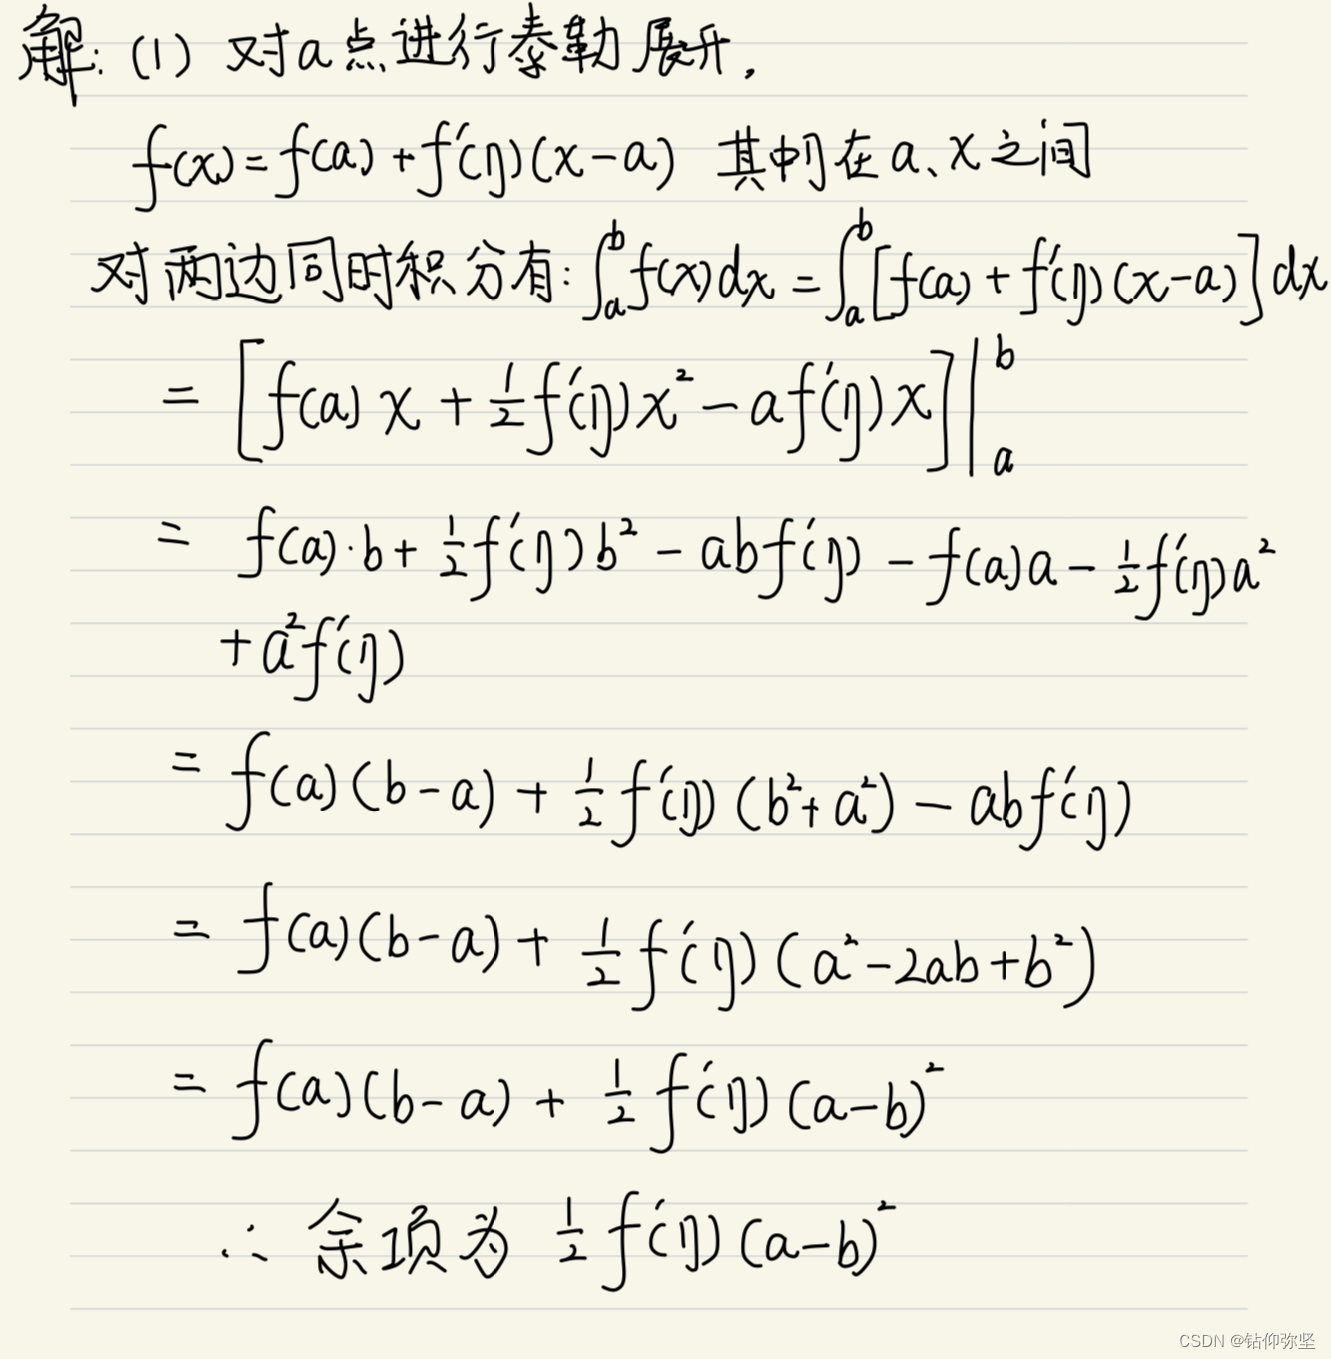 解: (1) 对a点进行泰勒展开,
f(x)=f(a)+f'(η)(x-a) 其中η在a、x之间
对两边同时积分有: ∫_a^b f(x)dx = ∫_a^b [f(a)+f'(η)(x-a)]dx
= [f(a)x + 1/2 f'(η)x² - af'(η)x] |_a^b
= f(a)·b + 1/2 f'(η)b² - abf'(η) - f(a)a - 1/2 f'(η)a²
+ a²f'(η)
= f(a)(b-a) + 1/2 f'(η)(b²+a²) - abf'(η)
= f(a)(b-a) + 1/2 f'(η)(a²-2ab+b²)
= f(a)(b-a) + 1/2 f'(η)(a-b)²
∴ 余项为 1/2 f'(η)(a-b)²
CSDN @钻仰弥坚